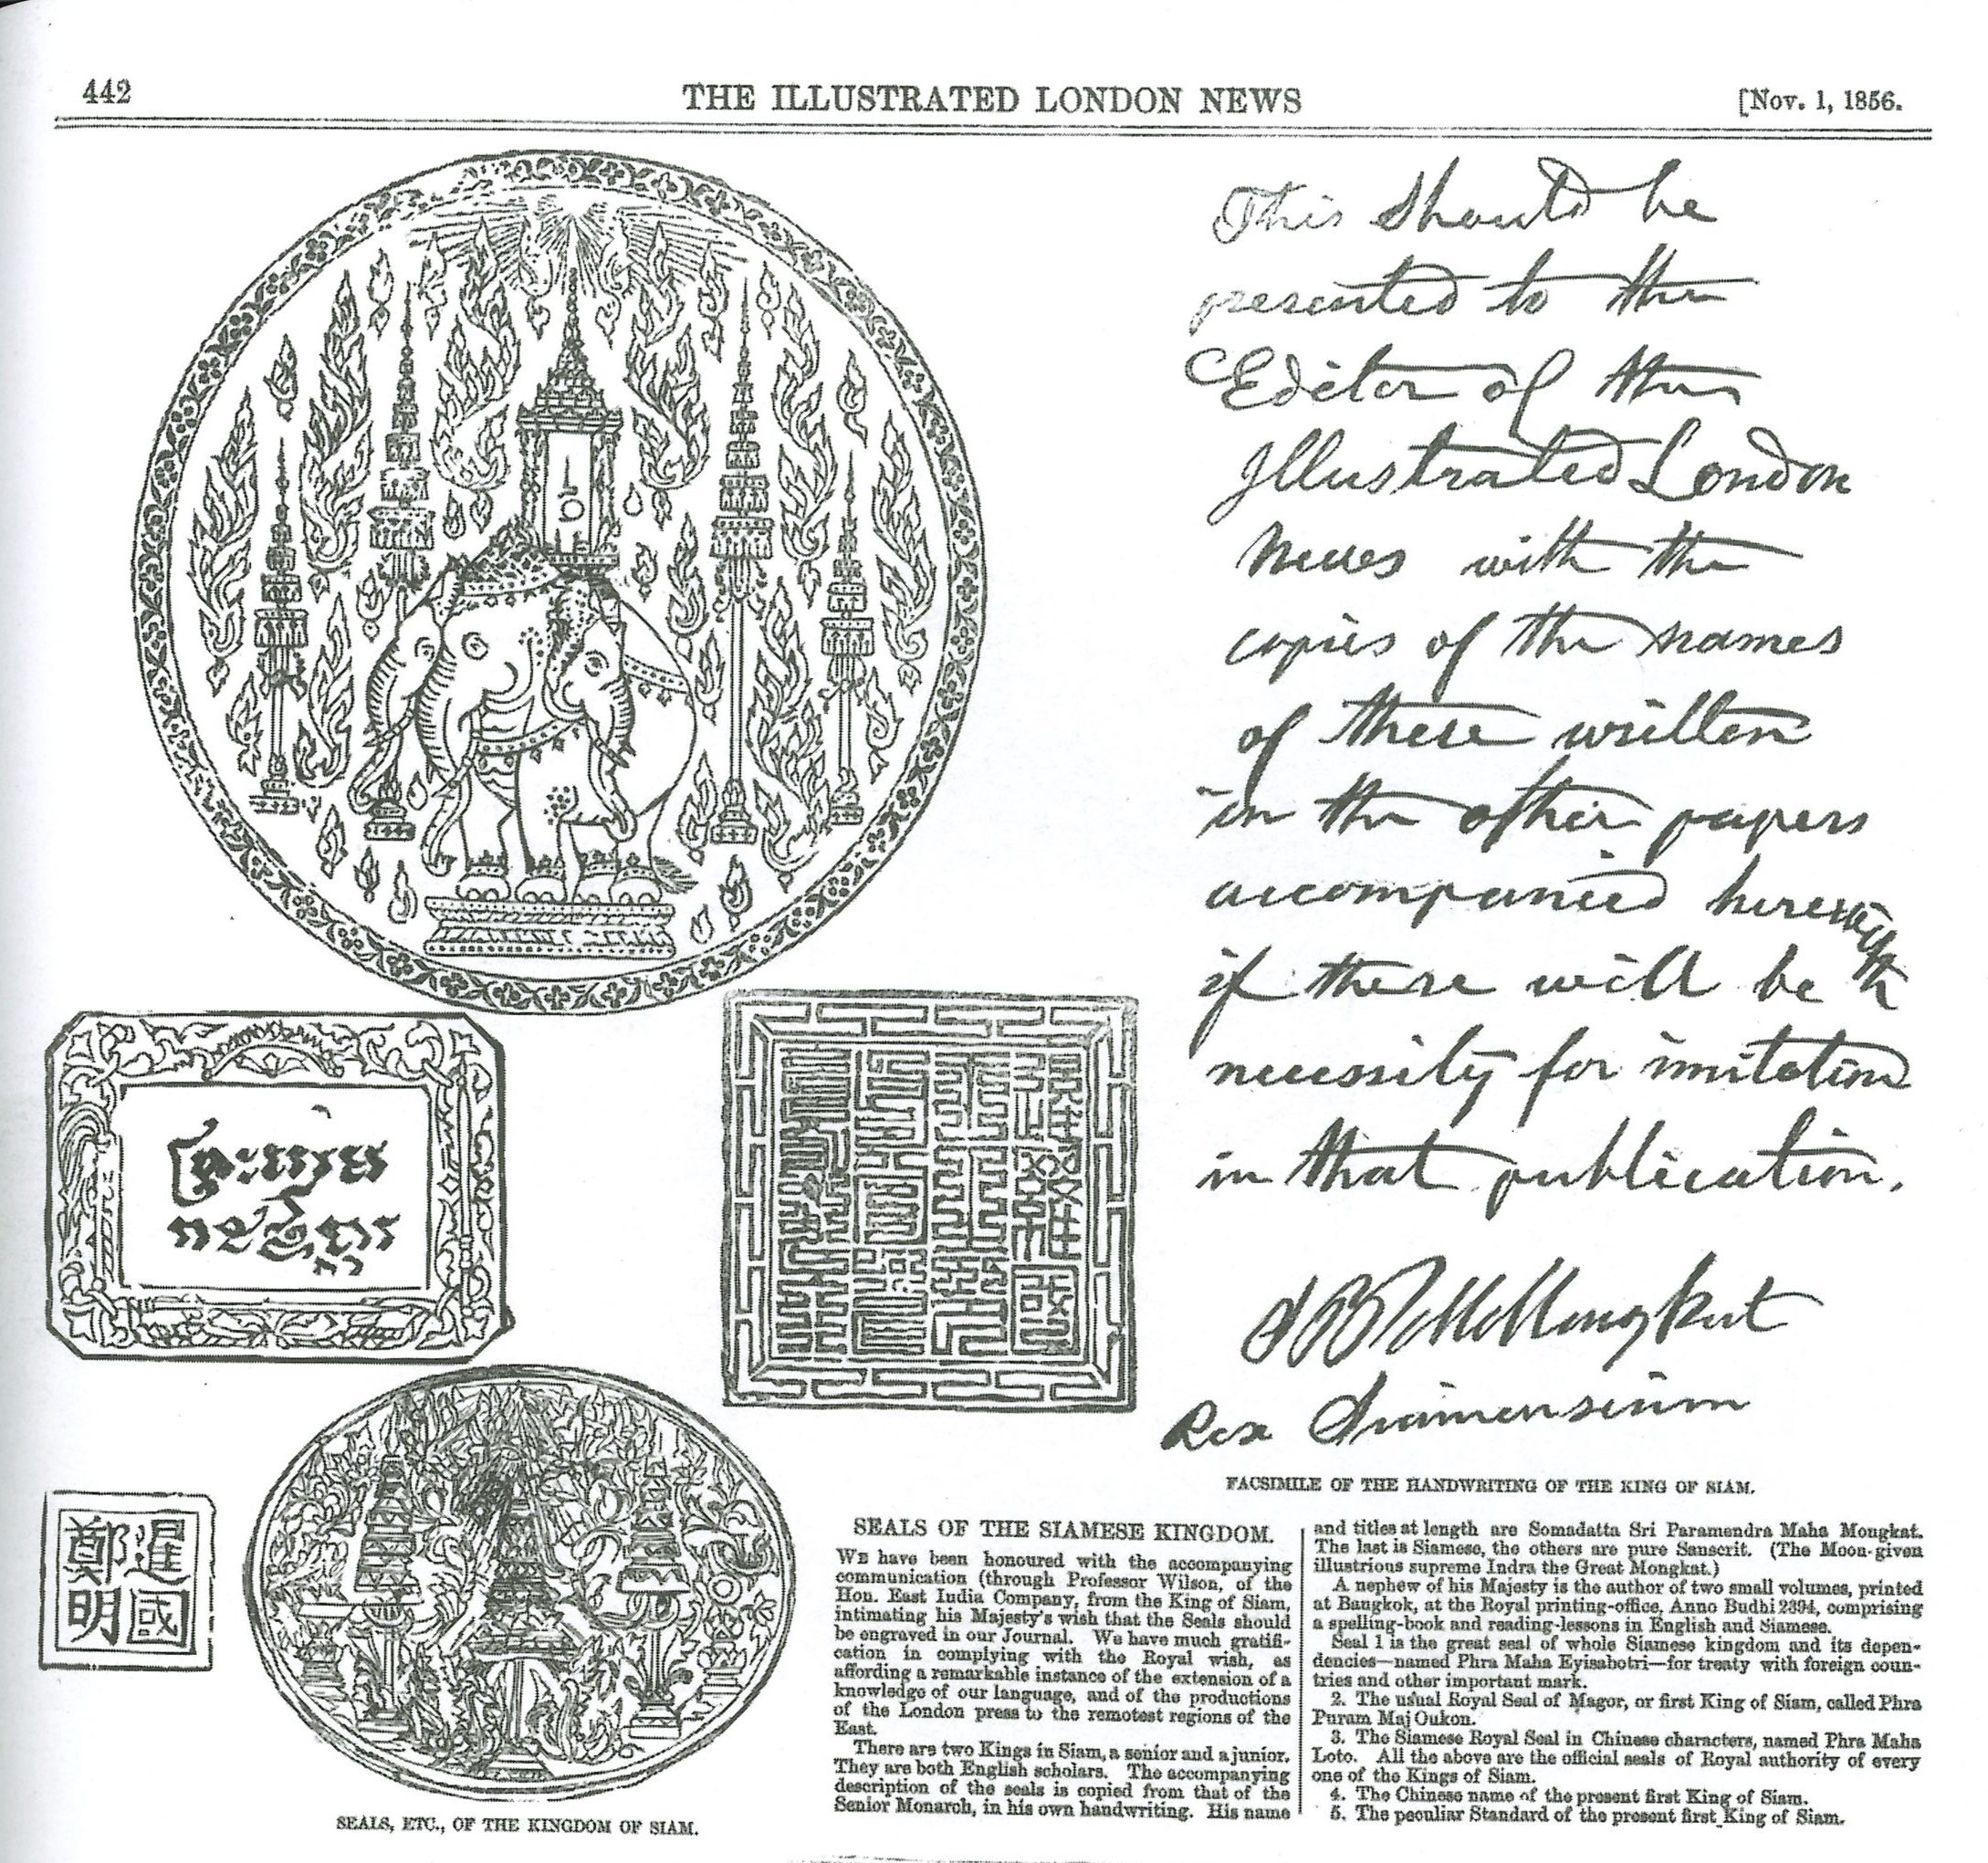 442
THE ILLUSTRATED LONDON NEWS
[Nov. 1, 1856.
This should be
presented to the
Editor of the
Illustrated London
News with the
copies of the names
of these written
in the other papers
accompanied herewith
if there will be
necessity for imitation
in that publication.
Mongkut
Rex Siamensium
FACSIMILE OF THE HANDWRITING OF THE KING OF SIAM.
暹國
鄭明
SEALS, ETC., OF THE KINGDOM OF SIAM.
SEALS OF THE SIAMESE KINGDOM.
WE have been honoured with the accompanying
communication (through Professor Wilson, of the
Hon. East India Company, from the King of Siam,
intimating his Majesty's wish that the Seals should
be engraved in our Journal. We have much gratifi-
cation in complying with the Royal wish, as
affording a remarkable instance of the extension of a
knowledge of our language, and of the productions
of the London press to the remotest regions of the
East.
There are two Kings in Siam, a senior and a junior.
They are both English scholars. The accompanying
description of the seals is copied from that of the
Senior Monarch, in his own handwriting. His name
and titles at length are Somadatta Sri Paramendra Maha Mongkat.
The last is Siamese, the others are pure Sanscrit. (The Moon-given
illustrious supreme Indra the Great Mongkat.)
A nephew of his Majesty is the author of two small volumes, printed
at Bangkok, at the Royal printing-office, Anno Budhi 2394, comprising
a spelling-book and reading-lessons in English and Siamese.
Seal 1 is the great seal of whole Siamese kingdom and its depen-
dencies—named Phra Maha Eyisabotri—for treaty with foreign coun-
tries and other important mark.
2. The usual Royal Seal of Magor, or first King of Siam, called Phra
Puram Maj Oukon.
3. The Siamese Royal Seal in Chinese characters, named Phra Maha
Loto. All the above are the official seals of Royal authority of every
one of the Kings of Siam.
4. The Chinese name of the present first King of Siam.
5. The peculiar Standard of the present first King of Siam.